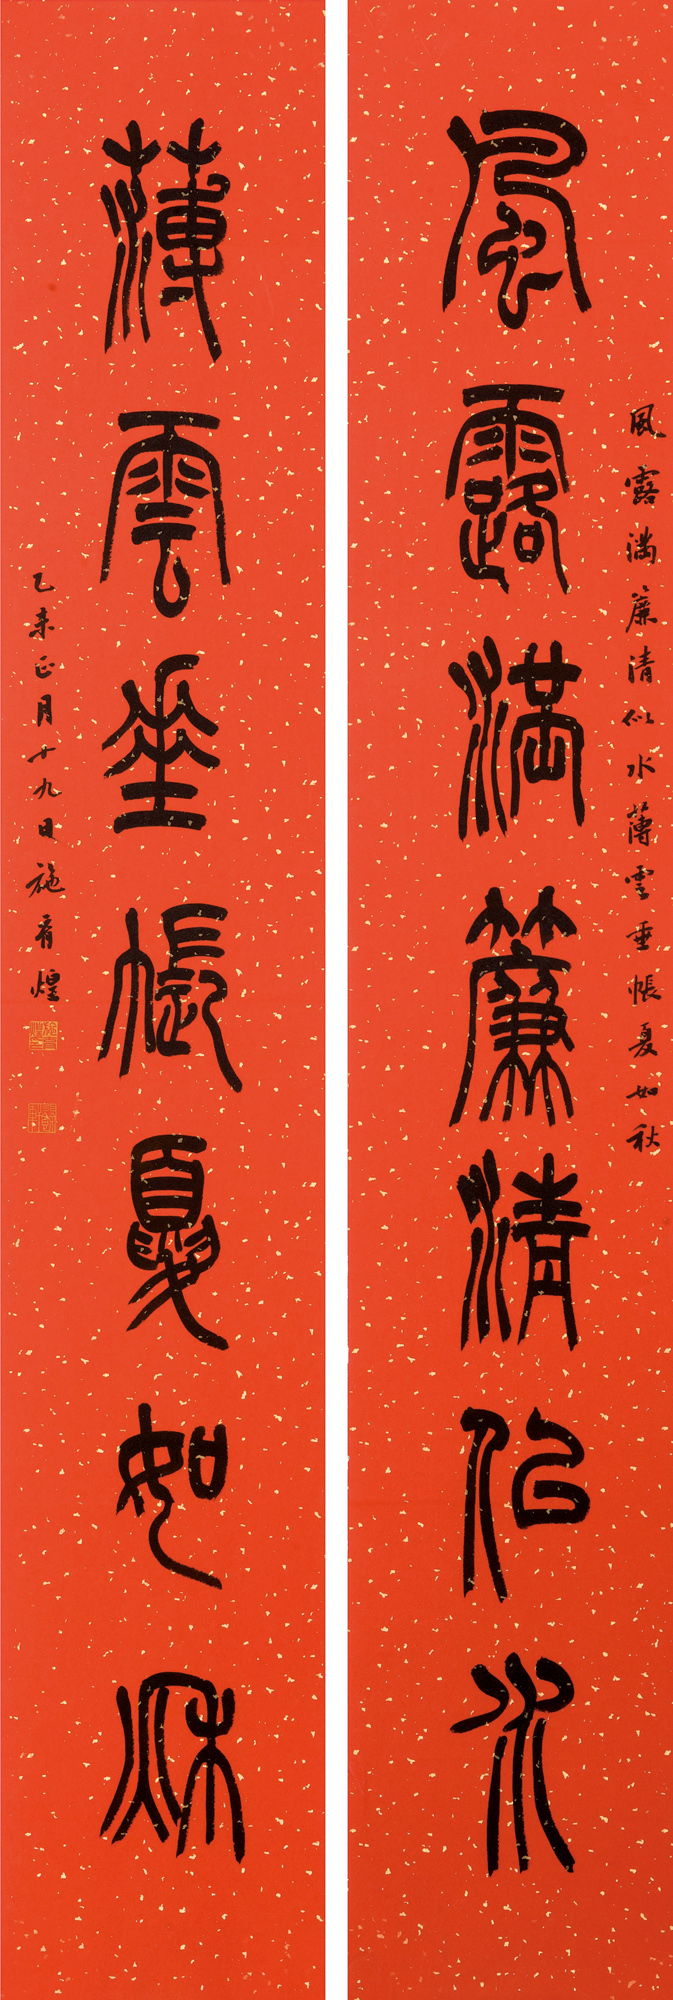 風露滿簾清似水
風露滿簾清似水薄雲垂帳夏如秋
薄雲垂帳夏如秋
乙未正月十九日施看煌